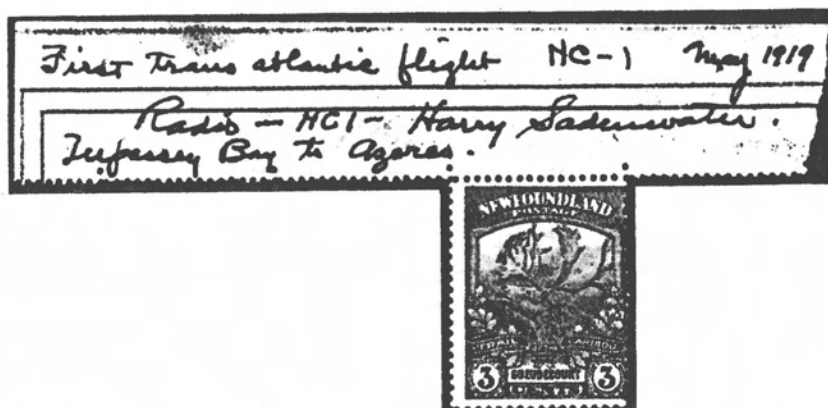 First Trans atlantic flight NC-1 May 1919
Radio - NC1 - Harry Sadenwater.
Trepassey Bay to Azores.
NEWFOUNDLAND
POSTAGE
GUEUDECOURT
3 3
CENTS